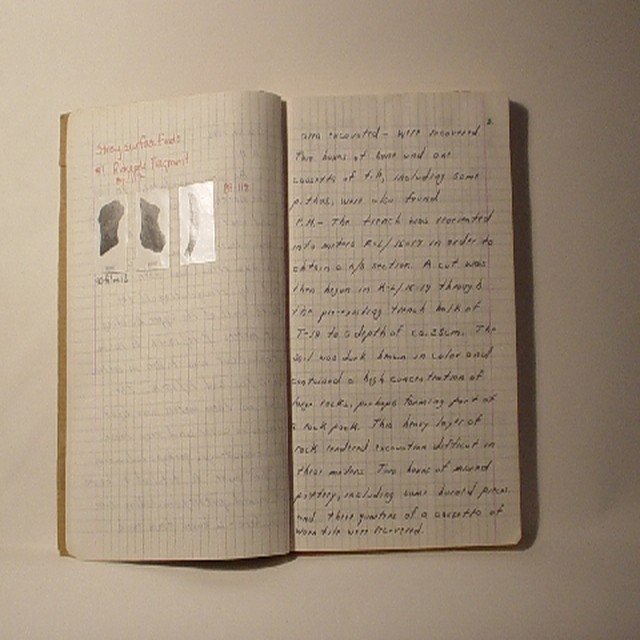 Stray surface finds
#1 Fragment
84-112
3.
area excavated - were recovered
Two boxes of bone and one
cassetta of tile, including some
pithos, were also found
P.M. - The trench was reoriented
into meters in order to
obtain a n/s section. A cut was
then begun in through
the pre-existing trench balk of
T-19 to a depth of ca. 28cm. The
soil was dark brown in color and
contained a high concentration of
large rocks, perhaps forming part of
a rock pack. This heavy layer of
rock rendered excavation difficult in
these meters. Two boxes of
pottery, including some burned pieces
and three quarters of a cassetta of
worn tile were recovered.